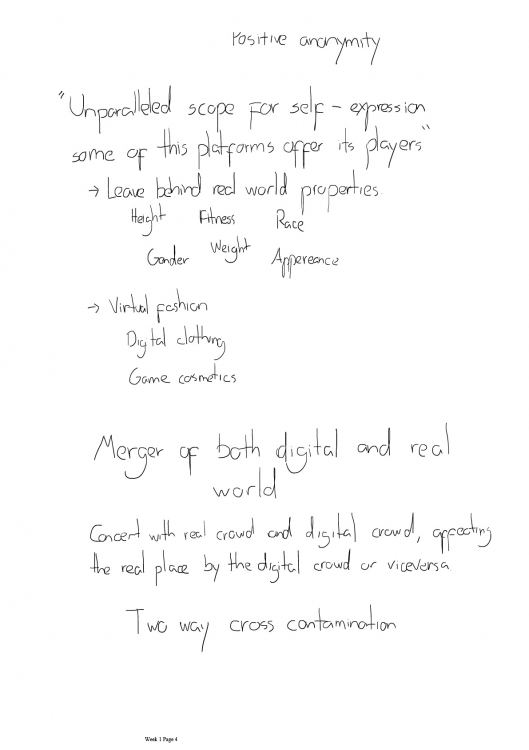 Positive anonymity
"Unparalleled scope for self-expression
some of this platforms offer its players"
→ Leave behind real world properties
Height Fitness Race
Gender Weight Appereance
→ Virtual fashion
Digital clothing
Game cosmetics
Merger of both digital and real
world
Concert with real crowd and digital crowd, affecting
the real place by the digital crowd or viceversa
Two way cross contamination
Week 1 Page 4